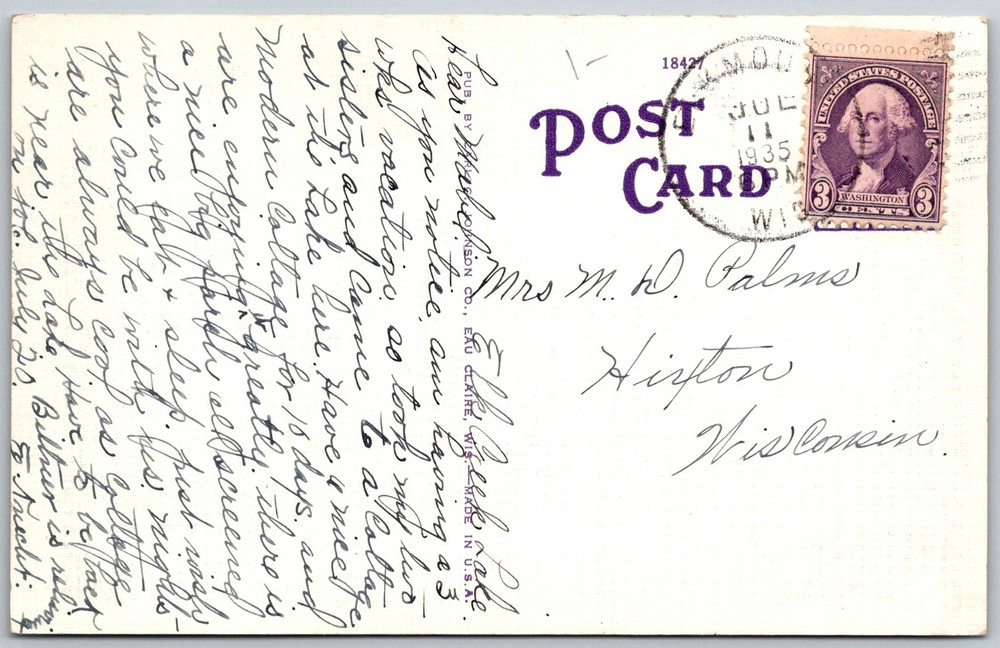 18427
POST
CARD
JUL
11
1935
PM
WIS
UNITED STATES POSTAGE
3 WASHINGTON 3
CENTS
Mrs M. D. Palms
Hixton
Wisconsin.
PUB BY JOHNSON CO., EAU CLAIRE, WIS. MADE IN U.S.A.
Elk Creek Lake.
Dear Mabel:
As you notice, am having a 3
wks vacation, so took my two
sisters and came to a cottage
at the Lake here. Have a nice
Modern Cottage for 10 days. and
are enjoying it greatly. there is
a nice big porch all screened
where we eat & sleep. Just wish
you could be with us. nights
are always cool, as cottage
is near the lake. I have to be back
on job. July 20.